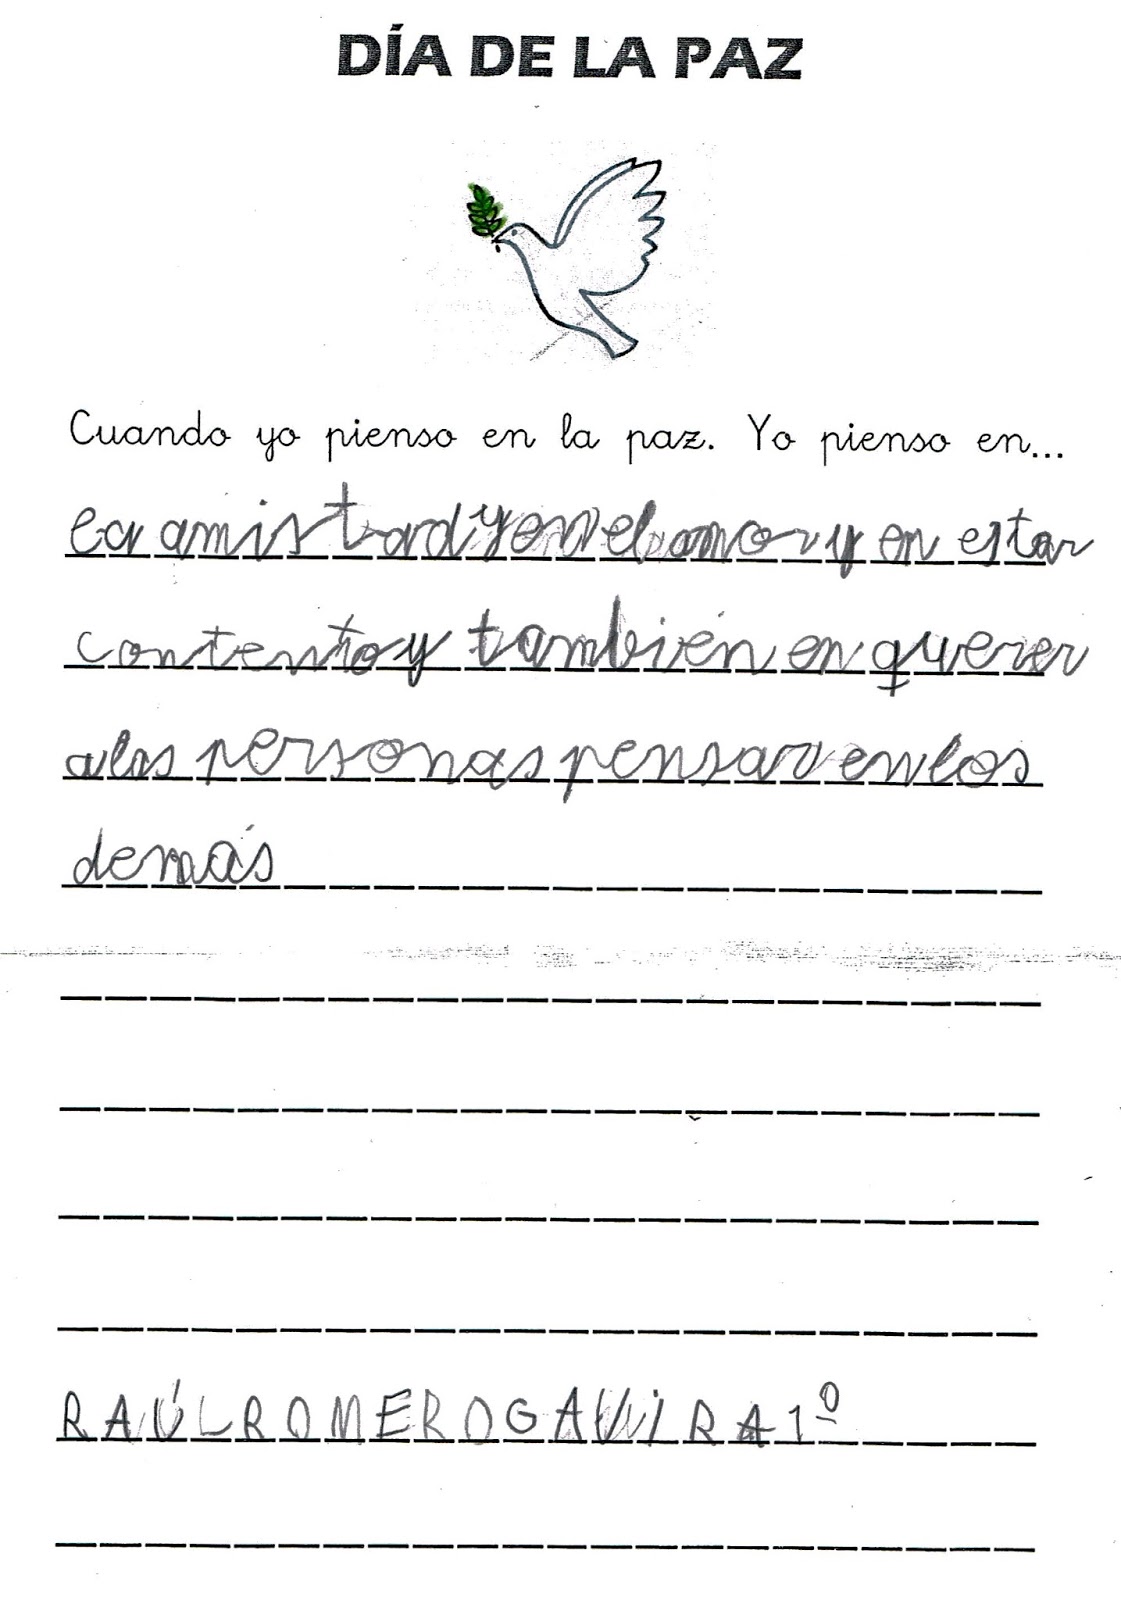 DÍA DE LA PAZ
Cuando yo pienso en la paz. Yo pienso en...
la amistad y en el amor y en estar
contento y también en querer
a las personas pensar en los
demás
RAÚL ROMERO GAVIRA 1º